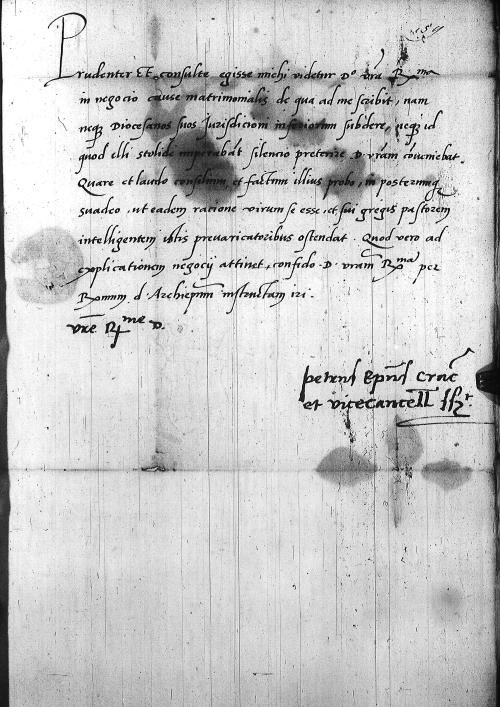 Prudenter Et consulte egisse michi videtur D.º vrā Rma
in negocio cause matrimonialis de qua ad me scribit, nam
neqz Diocesanos suos Jurisdicioni inferiorum subdere, neqz id
quod illi stolide imperabāt silencio preterire D. vrām cōueniebat.
Quare et laudo consilium et factum illius probo, in posterumqz
suadeo, ut eadem racione virum se esse, et sui gregis pastorem
intelligentem istis prevaricatoribus ostendat. Quod vero ad
explicationem negocij attinet, confido D. vram Rma per
Rmum d. Archiepum instructam iri.
vrē Rme D.
petrus Epūs Crac
et vicecancell